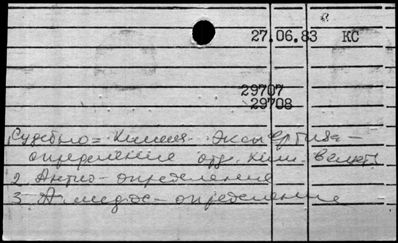 27.06.83 КС
29707
29708
Судебно = химич. экспертиза –
определение отд. хим. веществ
2. Антио – определение
3. – определение